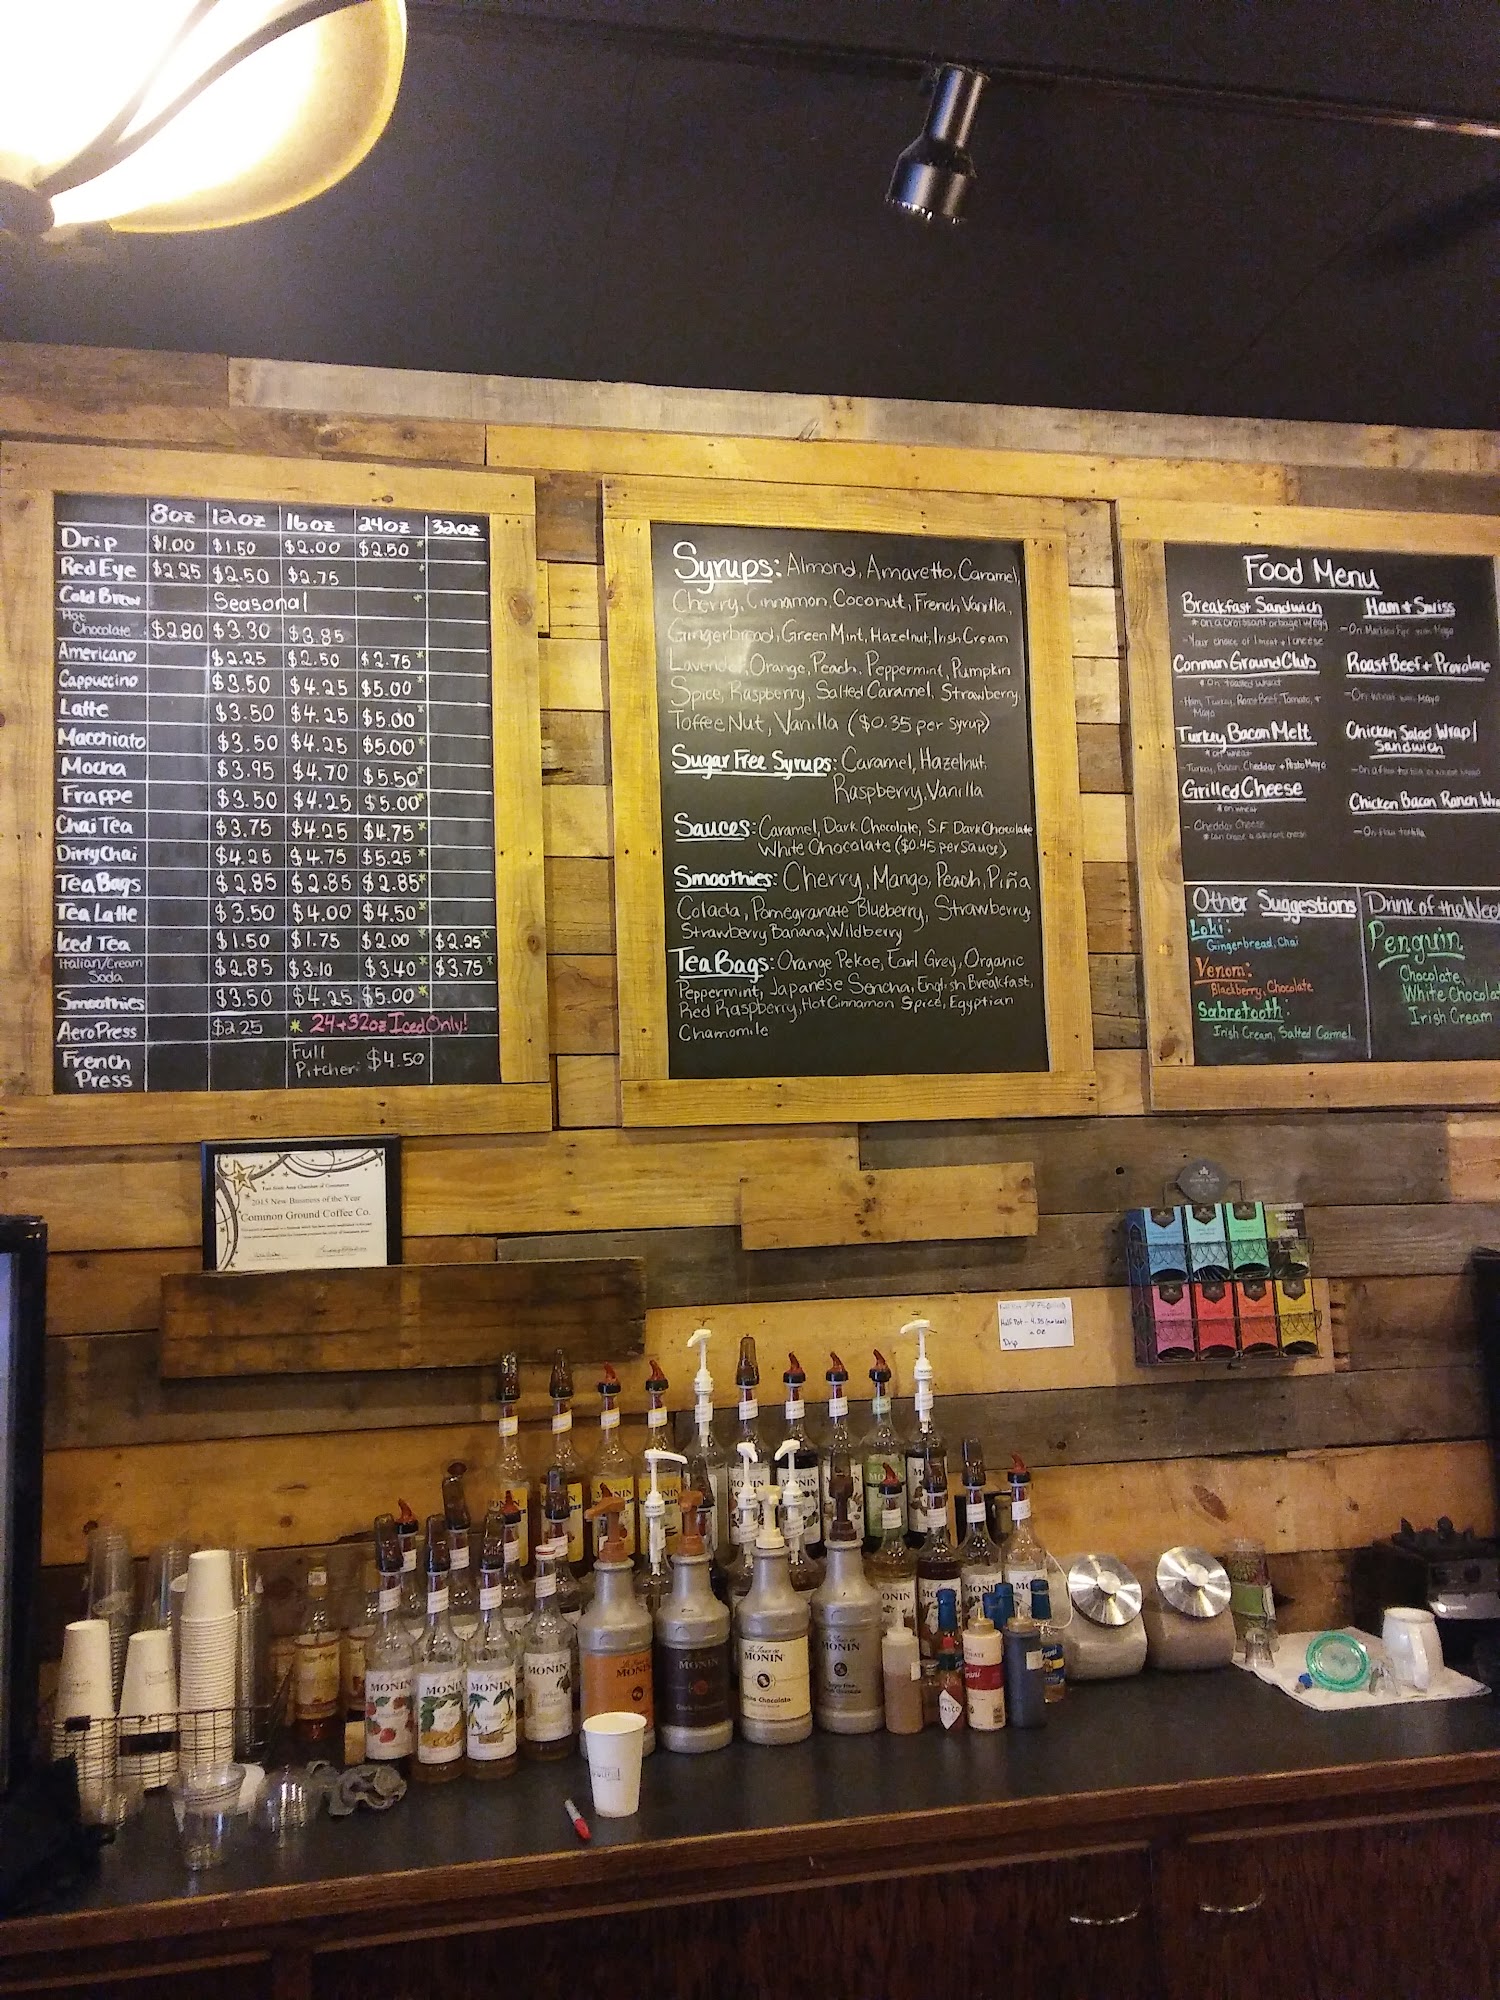 8oz 12oz 16oz 24oz 32oz
Drip $1.00 $1.50 $2.00 $2.50 *
Red Eye $2.25 $2.50 $2.75 *
Cold Brew Seasonal *
Hot Chocolate $2.80 $3.30 $3.85
Americano $2.25 $2.50 $2.75 *
Cappuccino $3.50 $4.25 $5.00 *
Latte $3.50 $4.25 $5.00 *
Macchiato $3.50 $4.25 $5.00 *
Mocha $3.95 $4.70 $5.50 *
Frappe $3.50 $4.25 $5.00 *
Chai Tea $3.75 $4.25 $4.75 *
Dirty Chai $4.25 $4.75 $5.25 *
Tea Bags $2.85 $2.85 $2.85 *
Tea Latte $3.50 $4.00 $4.50 *
Iced Tea $1.50 $1.75 $2.00 * $2.25 *
Italian/Cream Soda $2.85 $3.10 $3.40 * $3.75 *
Smoothies $3.50 $4.25 $5.00 *
AeroPress $2.25 * 24+32oz Iced Only!
French Press Full Pitcher $4.50
Syrups: Almond, Amaretto, Caramel,
Cherry, Cinnamon, Coconut, French Vanilla,
Gingerbread, Green Mint, Hazelnut, Irish Cream
Lavender, Orange, Peach, Peppermint, Pumpkin
Spice, Raspberry, Salted Caramel, Strawberry,
Toffee Nut, Vanilla ($0.35 per syrup)
Sugar Free Syrups: Caramel, Hazelnut
Raspberry, Vanilla
Sauces: Caramel, Dark Chocolate, S.F. Dark Chocolate
White Chocolate ($0.45 per Sauce)
Smoothies: Cherry, Mango, Peach, Piña
Colada, Pomegranate Blueberry, Strawberry
Strawberry Banana, Wildberry
Tea Bags: Orange Pekoe, Earl Grey, Organic
Peppermint, Japanese Sencha, English Breakfast,
Red Raspberry, Hot Cinnamon Spice, Egyptian
Chamomile
Food Menu
Breakfast Sandwich
* on a Croissant or bagel w/egg
- Your choice of 1 meat + 1 cheese
Common Ground Club
* On toasted wheat
- Ham, Turkey, Roast Beef, Tomato, +
Mayo
Turkey Bacon Melt
* on wheat
- Turkey, Bacon, Cheddar + Pesto Mayo
Grilled Cheese
* on wheat
- Cheddar Cheese
Ham + Swiss
- On Marbled Rye with Mayo
Roast Beef + Provolone
- On wheat with Mayo
Chicken Salad Wrap/
Sandwich
Chicken Bacon Ranch Wra
- On flour tortilla
Other Suggestions
Loki:
Gingerbread, Chai
Venom:
Blackberry, Chocolate
Sabretooth:
Irish Cream, Salted Carmel
Drink of the Week
Penguin
Chocolate,
White Chocolat
Irish Cream
2015 New Business of the Year
Common Ground Coffee Co.
Half Pot - 4.35
Drip
MONIN
MONIN
MONIN
MONIN
MONIN
MONIN
White Chocolate
MONIN
MONIN